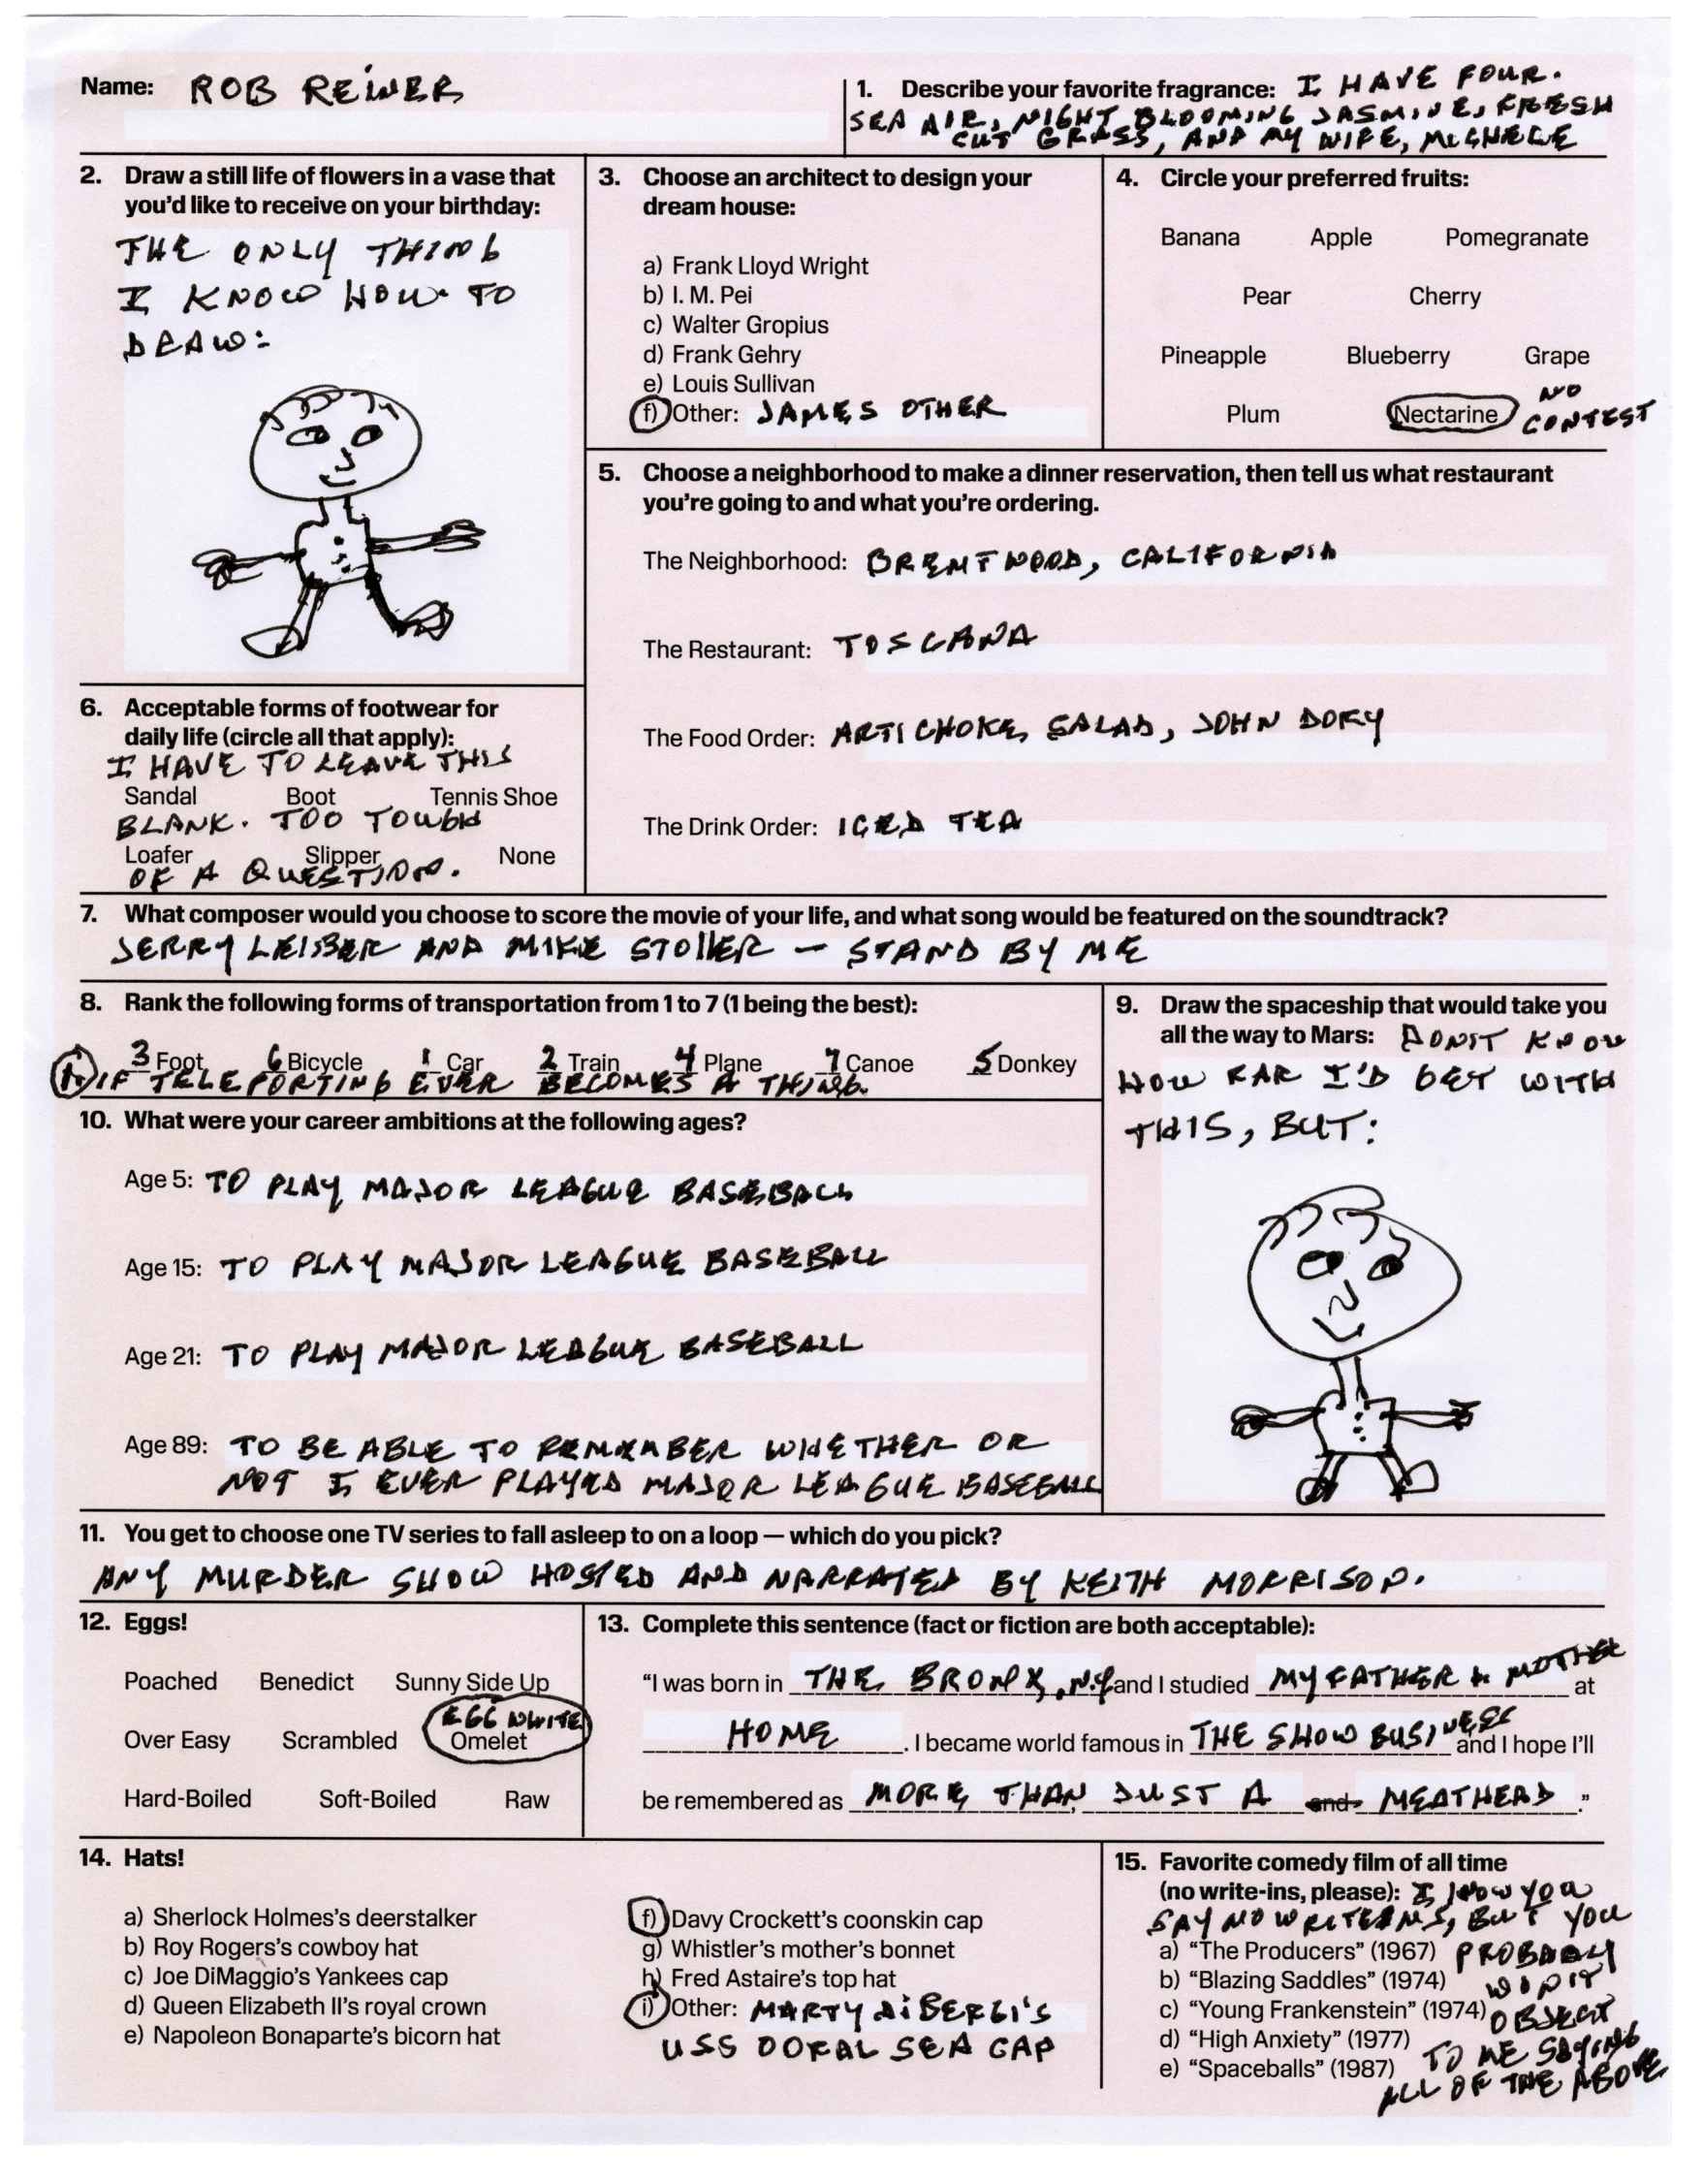 Name: ROB REINER
1. Describe your favorite fragrance: I HAVE FOUR.
SEA AIR, NIGHT BLOOMING JASMINE, FRESH
CUT GRASS, AND MY WIFE, MICHELE
2. Draw a still life of flowers in a vase that
you'd like to receive on your birthday:
THE ONLY THING
I KNOW HOW TO
DRAW:
3. Choose an architect to design your
dream house:
a) Frank Lloyd Wright
b) I. M. Pei
c) Walter Gropius
d) Frank Gehry
e) Louis Sullivan
f) Other: JAMES OTHER
4. Circle your preferred fruits:
Banana Apple Pomegranate
Pear Cherry
Pineapple Blueberry Grape
Plum Nectarine NO
CONTEST
5. Choose a neighborhood to make a dinner reservation, then tell us what restaurant
you're going to and what you're ordering.
The Neighborhood: BRENTWOOD, CALIFORNIA
The Restaurant: TOSCANA
The Food Order: ARTICHOKE SALAD, JOHN DORY
The Drink Order: ICED TEA
6. Acceptable forms of footwear for
daily life (circle all that apply):
I HAVE TO LEAVE THIS
Sandal Boot Tennis Shoe
BLANK. TOO TOUGH
Loafer Slipper None
OF A QUESTION.
7. What composer would you choose to score the movie of your life, and what song would be featured on the soundtrack?
JERRY LEIBER AND MIKE STOLLER – STAND BY ME
8. Rank the following forms of transportation from 1 to 7 (1 being the best):
3 Foot 6 Bicycle 1 Car 2 Train 4 Plane 7 Canoe 5 Donkey
1. IF TELEPORTING EVER BECOMES A THING.
9. Draw the spaceship that would take you
all the way to Mars: DON'T KNOW
HOW FAR I'D GET WITH
THIS, BUT:
10. What were your career ambitions at the following ages?
Age 5: TO PLAY MAJOR LEAGUE BASEBALL
Age 15: TO PLAY MAJOR LEAGUE BASEBALL
Age 21: TO PLAY MAJOR LEAGUE BASEBALL
Age 89: TO BE ABLE TO REMEMBER WHETHER OR
NOT I EVER PLAYED MAJOR LEAGUE BASEBALL
11. You get to choose one TV series to fall asleep to on a loop — which do you pick?
ANY MURDER SHOW HOSTED AND NARRATED BY KEITH MORRISON.
12. Eggs!
Poached Benedict Sunny Side Up
EGG WHITE
Over Easy Scrambled Omelet
Hard-Boiled Soft-Boiled Raw
13. Complete this sentence (fact or fiction are both acceptable):
“I was born in THE BRONX, N.Y and I studied MY FATHER & MOTHER at
HOME. I became world famous in THE SHOW BUSINESS and I hope I'll
be remembered as MORE THAN JUST A and MEATHEAD.”
14. Hats!
a) Sherlock Holmes's deerstalker
b) Roy Rogers's cowboy hat
c) Joe DiMaggio's Yankees cap
d) Queen Elizabeth II's royal crown
e) Napoleon Bonaparte's bicorn hat
f) Davy Crockett's coonskin cap
g) Whistler's mother's bonnet
h) Fred Astaire's top hat
i) Other: MARTY DiBERGI'S
USS OORAL SEA CAP
15. Favorite comedy film of all time
(no write-ins, please): I KNOW YOU
SAY NO WRITE INS, BUT YOU
a) “The Producers” (1967) PROBABLY
b) “Blazing Saddles” (1974) WON'T
c) “Young Frankenstein” (1974) OBJECT
d) “High Anxiety” (1977) TO ME SAYING
e) “Spaceballs” (1987) ALL OF THE ABOVE